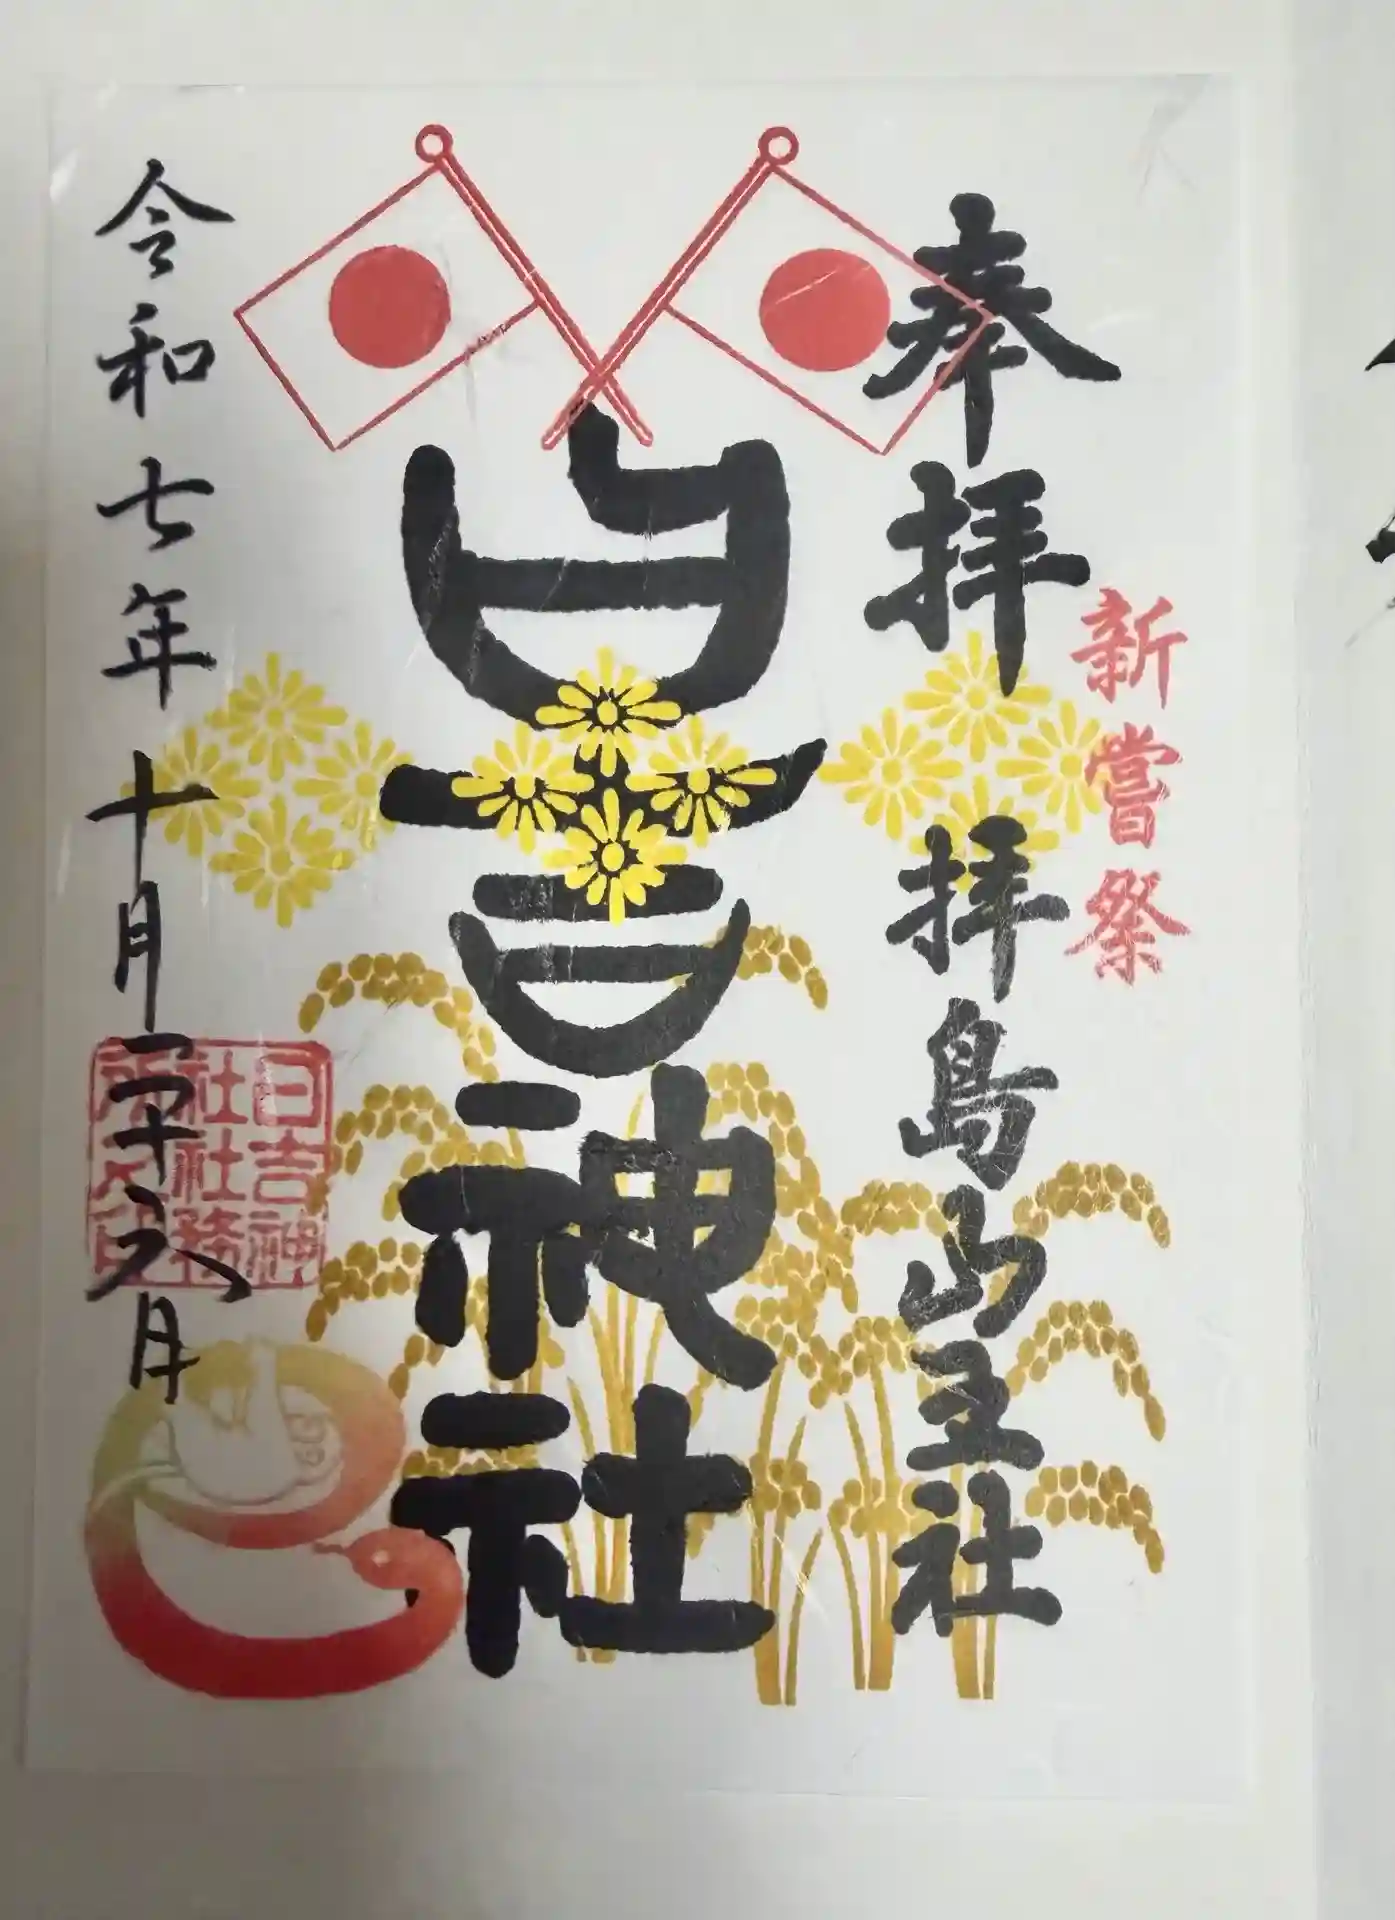 新嘗祭
奉拝 拝島山王社
日吉神社
令和七年十月二十六日
日吉神
社社務
所之印